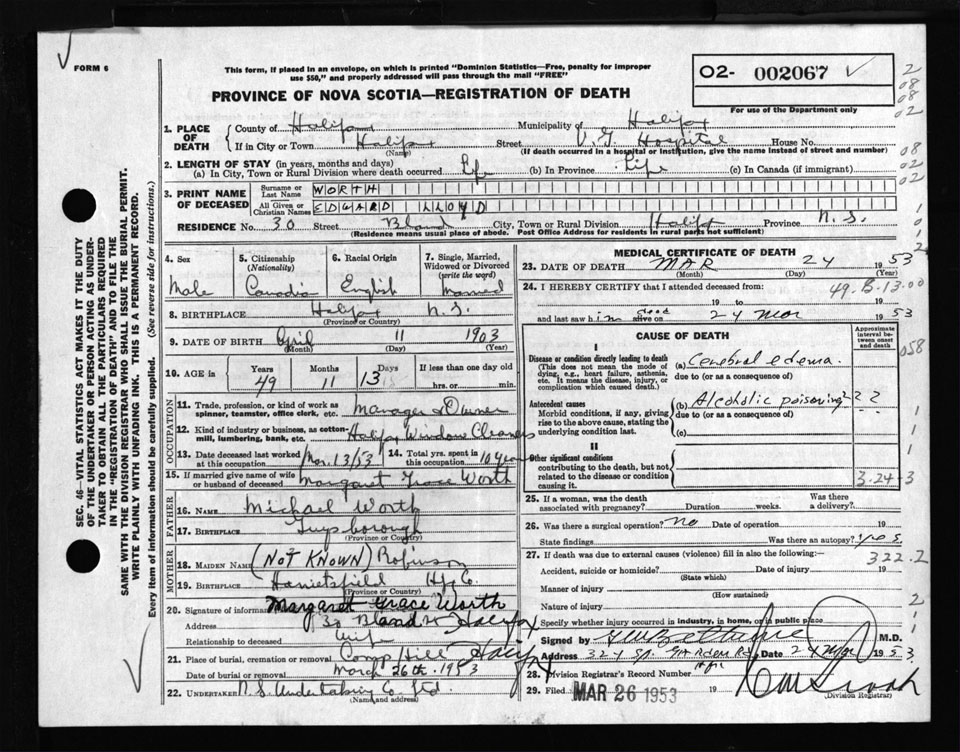 FORM 6
This form, if placed in an envelope, on which is printed "Dominion Statistics—Free, penalty for improper
use $50," and properly addressed will pass through the mail "FREE"
02- 002067
PROVINCE OF NOVA SCOTIA—REGISTRATION OF DEATH
For use of the Department only
1. PLACE OF DEATH
County of Halifax Municipality of Halifax
If in City or Town Halifax Street V. G. Hospital House No.
(Name) (If death occurred in a hospital or institution, give the name instead of street and number)
2. LENGTH OF STAY (in years, months and days)
(a) In City, Town or Rural Division where death occurred Life (b) In Province Life (c) In Canada (if immigrant)
3. PRINT NAME OF DECEASED
Surname or Last Name WORTH
All Given or Christian Names EDWARD LLOYD
RESIDENCE No. 30 Street Bland City, Town or Rural Division Halifax Province N. S.
(Residence means usual place of abode. Post Office Address for residents in rural parts not sufficient)
4. Sex
Male
5. Citizenship
(Nationality)
Canadian
6. Racial Origin
English
7. Single, Married,
Widowed or Divorced
(write the word)
Married
8. BIRTHPLACE Halifax N. S.
(Province or Country)
9. DATE OF BIRTH April 11 1903
(Month) (Day) (Year)
10. AGE in
Years Months Days If less than one day old
49 11 13 hrs. or min.
OCCUPATION
11. Trade, profession, or kind of work as
spinner, teamster, office clerk, etc. Manager & Owner
12. Kind of industry or business, as cotton-
mill, lumbering, bank, etc. Halifax Window Cleaners
13. Date deceased last worked
at this occupation Mar. 13/53
14. Total yrs. spent in
this occupation 10 years
15. If married give name of wife
or husband of deceased Margaret Grace Worth
FATHER
16. NAME Michael Worth
17. BIRTHPLACE Guysborough
(Province or Country)
MOTHER
18. MAIDEN NAME (NOT KNOWN) Robinson
19. BIRTHPLACE Harrietsfield Hfx Co.
(Province or Country)
20. Signature of informant Margaret Grace Worth
Address 30 Bland St Halifax
Relationship to deceased Wife
21. Place of burial, cremation or removal Camp Hill Halifax
Date of burial or removal March 26th. 1953
22. UNDERTAKER N. S. Undertaking Co. Ltd.
(Name and address)
MEDICAL CERTIFICATE OF DEATH
23. DATE OF DEATH MAR 24 1953
(Month) (Day) (Year)
24. I HEREBY CERTIFY that I attended deceased from:
49-B-13.00
19 to 19
and last saw him dead alive on 24 Mar 1953
CAUSE OF DEATH
Approximate
interval between
onset
and death
I
Disease or condition directly leading to death
(This does not mean the mode of
dying, e.g., heart failure, asthenia,
etc. It means the disease, injury, or
complication which caused death.)
(a) Cerebral edema.
due to (or as a consequence of)
Antecedent causes
Morbid conditions, if any, giving
rise to the above cause, stating the
underlying condition last.
(b) Alcoholic poisoning ? ?
due to (or as a consequence of)
(c)
II
Other significant conditions
contributing to the death, but not
related to the disease or condition
causing it.
3-24-3
25. If a woman, was the death
associated with pregnancy? Duration weeks. Was there
a delivery?
26. Was there a surgical operation? no Date of operation 19
State findings Was there an autopsy? yes
27. If death was due to external causes (violence) fill in also the following:—
322.2
Accident, suicide or homicide? Date of injury 19
(State which)
Manner of injury
(How sustained)
Nature of injury
Specify whether injury occurred in industry, in home, or in public place
Signed by M.D.
Address Date 24 Mar 1953
28. Division Registrar's Record Number
29. Filed MAR 26 1953 19
(Division Registrar)
SEC. 46—VITAL STATISTICS ACT MAKES IT THE DUTY
OF THE UNDERTAKER OR PERSON ACTING AS UNDER-
TAKER TO OBTAIN ALL THE PARTICULARS REQUIRED
IN THE "REGISTRATION OF DEATH" AND TO FILE THE
SAME WITH THE DIVISION REGISTRAR WHO SHALL ISSUE THE BURIAL PERMIT.
WRITE PLAINLY WITH UNFADING INK. THIS IS A PERMANENT RECORD.
Every item of information should be carefully supplied. (See reverse side for instructions.)